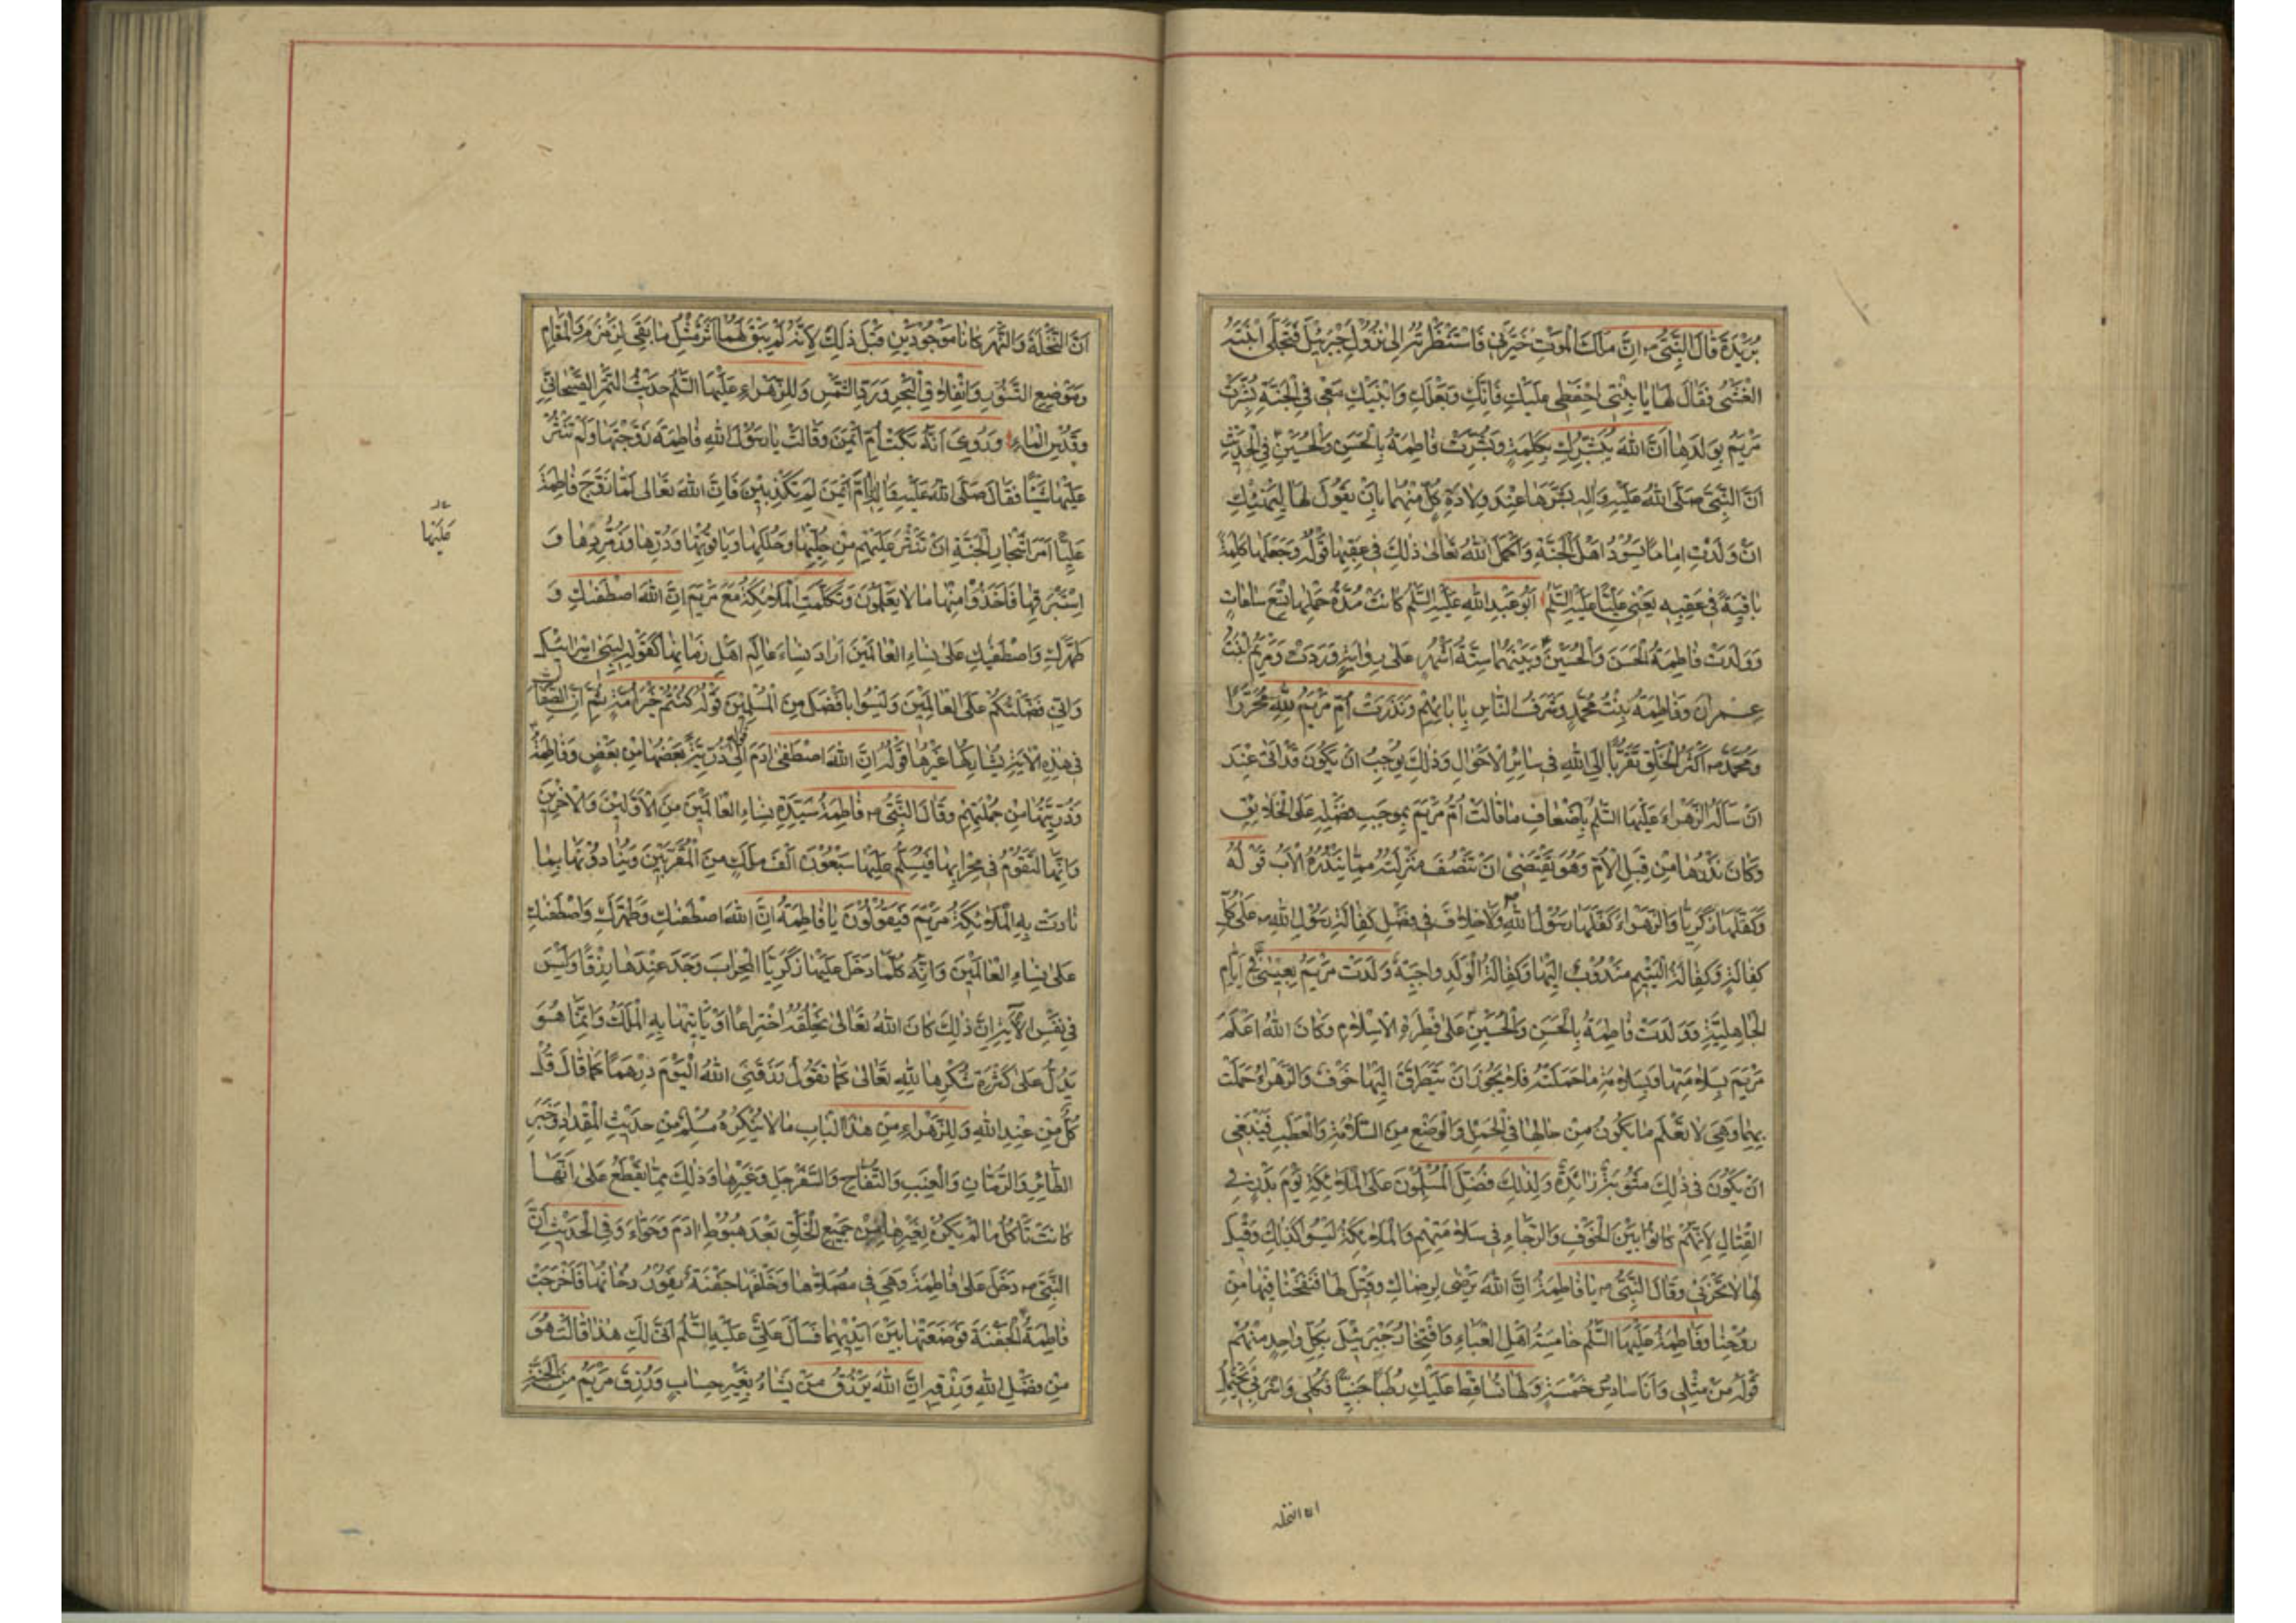 بُرَيْدَةَ قَالَ النَّبِيُّ ص اِنَّ مَلَكَ الْمَوْتِ خَيَّرَنِي فَاسْتَنْظَرْتُهُ اِلىٰ نُزُولِ جَبْرَئِيلَ فَتَجَلّٰى ابْنَتَهُ
الْغَشْىُ فَقَالَ لَهَا يَا بِنْتِي احْفَظِي عَلَيْكِ فَاِنَّكِ وَبَعْلَكِ وَابْنَيْكِ مَعِي فِي الْجَنَّةِ بُشِّرَتْ
مَرْيَمُ بِوَلَدِهَا اَنَّ اللهَ يُبَشِّرُكِ بِكَلِمَةٍ وَبُشِّرَتْ فَاطِمَةُ بِالْحَسَنِ وَالْحُسَيْنِ فِي الْحَدِيثِ
اَنَّ النَّبِيَّ صَلَّى اللهُ عَلَيْهِ وَاٰلِهِ بَشَّرَهَا عِنْدَ وِلَادَةِ كُلٍّ مِنْهُمَا بِاَنْ يَقُولَ لَهَا لِيَهْنِئْكِ
اَنْ وَلَدْتِ اِمَامًا يَسُودُ اَهْلَ الْجَنَّةِ وَاَكْمَلَ اللهُ تَعَالىٰ ذٰلِكَ فِي عَقِبِهَا قَوْلُهُ وَجَعَلَهَا كَلِمَةً
بَاقِيَةً فِي عَقِبِهِ يَعْنِي عَلِيًّا عَلَيْهِ السَّلَمُ اَبُو عَبْدِ اللهِ عَلَيْهِ السَّلَمُ كَانَتْ مُدَّةُ حَمْلِهَا تِسْعَ سَاعَاتٍ
وَوَلَدَتْ فَاطِمَةُ الْحَسَنَ وَالْحُسَيْنَ وَبَيْنَهُمَا سِتَّةُ اَشْهُرٍ عَلىٰ رِوَايَةٍ وَرَدَتْ وَمَرْيَمُ ابْنَتُ
عِمْرَانَ وَفَاطِمَةُ بِنْتُ مُحَمَّدٍ وَشَرَفُ النَّاسِ بِاٰبَائِهِمْ وَنَذَرَتْ اُمُّ مَرْيَمَ لِلّٰهِ مُحَرَّرًا
وَمُحَمَّدٌ ص اَكْثَرُ الْخَلْقِ تَقَرُّبًا اِلَى اللهِ فِي سَائِرِ الْاَحْوَالِ وَذٰلِكَ يُوجِبُ اَنْ يَكُونَ قَدْ اَتٰى عِنْدَ
اَنْ سَاَلَهُ الزَّهْرَاءَ عَلَيْهَا السَّلَمُ بِاَضْعَافِ مَا قَالَتْ اُمُّ مَرْيَمَ بِمُوجَبِ فَضْلِهِ عَلَى الْخَلَائِقِ
وَكَانَ نَذْرُهَا مِنْ قِبَلِ الْاُمِّ وَهُوَ يَقْتَضِي اَنْ تَنْصُفَ مَنْزِلَتُهُ مِمَّا يَنْذُرُهُ الْاَبُ قَوْلُهُ
وَكَفَّلَهَا زَكَرِيَّا وَالزَّهْرَاءُ كَفَّلَهَا رَسُولُ اللهِ وَلَا خِلَافَ فِي فَضْلِ كَفَالَةِ رَسُولِ اللهِ ص عَلىٰ كُلِّ
كَفَالَةٍ وَكَفَالَةُ الْيَتِيمِ مَنْدُوبٌ اِلَيْهَا وَكَفَالَةُ الْوَلَدِ وَاجِبَةٌ وَلَدَتْ مَرْيَمُ بِعِيسٰى فِي اَيَّامِ
الْجَاهِلِيَّةِ وَوَلَدَتْ فَاطِمَةُ بِالْحَسَنِ وَالْحُسَيْنِ عَلىٰ فِطْرَةِ الْاِسْلَامِ وَكَانَ اللهُ اَعْلَمَ
مَرْيَمَ بِسَلَامَتِهَا وَبِسَلَامَةِ مَا حَمَلَتْهُ فَلَا يَجُوزُ اَنْ يَتَطَرَّقَ اِلَيْهَا خَوْفٌ وَالزَّهْرَاءُ حَمَلَتْ
بِهِمَا وَهِيَ لَا تَعْلَمُ مَا يَكُونُ مِنْ حَالِهَا فِي الْحَمْلِ وَالْوَضْعِ مِنَ السَّلَامَةِ وَالْعَطَبِ فَيَنْبَغِي
اَنْ يَكُونَ فِي ذٰلِكَ مَثُوبَةٌ زَائِدَةٌ وَلِذٰلِكَ فُضِّلَ الْمُسْلِمُونَ عَلَى الْمَلَائِكَةِ يَوْمَ بَدْرٍ فِي
الْقِتَالِ لِاَنَّهُمْ كَانُوا بَيْنَ الْخَوْفِ وَالرَّجَاءِ فِي سَلَامَتِهِمْ وَالْمَلَائِكَةُ لَيْسُوا كَذٰلِكَ وَقِيلَ
لَهَا لَا تَحْزَنِي وَقَالَ النَّبِيُّ ص يَا فَاطِمَةُ اِنَّ اللهَ يَرْضٰى لِرِضَاكِ وَقِيلَ لَهَا فَنَفَخْنَا فِيهَا مِنْ
رُوحِنَا وَفَاطِمَةُ عَلَيْهَا السَّلَمُ خَامِسَةُ اَهْلِ الْعَبَاءِ وَافْتِخَارُ جَبْرَئِيلَ بِكُلِّ وَاحِدٍ مِنْهُمْ
قَوْلُهُ مَنْ مِثْلِي وَاَنَا سَادِسُ خَمْسَةٍ وَلَهَا تُسَاقِطْ عَلَيْكِ رُطَبًا جَنِيًّا فَكُلِي وَاشْرَبِي يَحْتَمِلُ
ان النخلة
اَنَّ النَّخْلَةَ وَالنَّهَرَ كَانَا مَوْجُودَيْنِ قَبْلَ ذٰلِكَ لِاَنَّهُ لَمْ يَبْقَ لَهُمَا اَثَرٌ مِثْلُ مَا بَقِيَ لِزَمْزَمَ وَالْمَقَامِ
وَمَوْضِعِ التَّنُّورِ وَانْفِلَاقِ الْبَحْرِ وَرَدِّ الشَّمْسِ وَلِلزَّهْرَاءِ عَلَيْهَا السَّلَمُ حَدِيثُ التَّمْرِ الصَّيْحَانِيِّ
وَقُدْسِ الْمَاءِ وَرُوِيَ اَنَّهُ بَكَتْ اُمُّ اَيْمَنَ وَقَالَتْ يَا رَسُولَ اللهِ فَاطِمَةُ زَوَّجْتَهَا وَلَمْ تَنْثُرْ
عَلَيْهَا شَيْئًا فَقَالَ صَلَّى اللهُ عَلَيْهِ يَا اُمَّ اَيْمَنَ لِمَ تَكْذِبِينَ فَاِنَّ اللهَ تَعَالىٰ لَمَّا زَوَّجَ فَاطِمَةَ
عَلِيًّا اَمَرَ اَشْجَارَ الْجَنَّةِ اَنْ تَنْثُرَ عَلَيْهِمْ مِنْ حُلِيِّهَا وَحُلَلِهَا وَيَاقُوتِهَا وَدُرِّهَا وَزُمُرُّدِهَا وَ
عليها
اِسْتَبْرَقِهَا فَاَخَذُوا مِنْهَا مَا لَا يَعْلَمُونَ وَتَكَلَّمَتِ الْمَلَائِكَةُ مَعَ مَرْيَمَ اِنَّ اللهَ اصْطَفٰيكِ وَ
طَهَّرَكِ وَاصْطَفٰيكِ عَلىٰ نِسَاءِ الْعَالَمِينَ اَرَادَ نِسَاءَ عَالَمِ اَهْلِ زَمَانِهَا كَقَوْلِهِ لِبَنِي اِسْرَائِيلَ
وَاَنِّي فَضَّلْتُكُمْ عَلَى الْعَالَمِينَ وَلَيْسُوا بِاَفْضَلَ مِنَ الْمُسْلِمِينَ قَوْلُهُ كُنْتُمْ خَيْرَ اُمَّةٍ ثُمَّ اِنَّ الصِّفَاتِ
فِي هٰذِهِ الْاٰيَةِ يُشَارِكُهَا غَيْرُهَا قَوْلُهُ اِنَّ اللهَ اصْطَفٰى اٰدَمَ اِلىٰ قوله ذُرِّيَّةً بَعْضُهَا مِنْ بَعْضٍ وَفَاطِمَةُ
وَذُرِّيَّتُهَا مِنْ جُمْلَتِهِمْ وَقَالَ النَّبِيُّ ص فَاطِمَةُ سَيِّدَةُ نِسَاءِ الْعَالَمِينَ مِنَ الْاَوَّلِينَ وَالْاٰخِرِينَ
وَاِنَّهَا لَتَقُومُ فِي مِحْرَابِهَا فَيُسَلِّمُ عَلَيْهَا سَبْعُونَ اَلْفَ مَلَكٍ مِنَ الْمُقَرَّبِينَ وَيُنَادُونَهَا بِمَا
نَادَتْ بِهِ الْمَلَائِكَةُ مَرْيَمَ فَيَقُولُونَ يَا فَاطِمَةُ اِنَّ اللهَ اصْطَفٰيكِ وَطَهَّرَكِ وَاصْطَفٰيكِ
عَلىٰ نِسَاءِ الْعَالَمِينَ وَاِنَّهُ كُلَّمَا دَخَلَ عَلَيْهَا زَكَرِيَّا الْمِحْرَابَ وَجَدَ عِنْدَهَا رِزْقًا وَلَيْسَ
فِي نَفْسِ الْاٰيَةِ اِنَّ ذٰلِكَ كَانَ اللهُ تَعَالىٰ يَخْلُقُهُ اخْتِرَاعًا اَوْ يَاْتِيهَا بِهِ الْمَلَكُ وَاِنَّمَا هُوَ
يَدُلُّ عَلىٰ كَثْرَةِ شُكْرِهَا لِلّٰهِ تَعَالىٰ كَمَا تَقُولُ رَزَقَنِي اللهُ الْيَوْمَ دِرْهَمًا كَمَا قَالَ قُلْ
كُلٌّ مِنْ عِنْدِ اللهِ وَلِلزَّهْرَاءِ مِنْ هٰذَا الْبَابِ مَا لَا يُنْكِرُهُ مُسْلِمٌ مِنْ حَدِيثِ الْمِقْدَادِ وَخَبَرِ
الطَّائِرِ وَالرُّمَّانِ وَالْعِنَبِ وَالتُّفَّاحِ وَالسَّفَرْجَلِ وَغَيْرِهَا وَذٰلِكَ مِمَّا يُقْطَعُ عَلىٰ اَنَّهَا
كَانَتْ تَاْكُلُ مَا لَمْ يَكُنْ لِغَيْرِهَا مِنْ جَمِيعِ الْخَلْقِ بَعْدَ هُبُوطِ اٰدَمَ وَحَوَّاءَ وَفِي الْحَدِيثِ اَنَّ
النَّبِيَّ ص دَخَلَ عَلىٰ فَاطِمَةَ وَهِيَ فِي مُصَلَّاهَا وَخَلْفَهَا جَفْنَةٌ يَفُورُ دُخَانُهَا فَاَخْرَجَتْ
فَاطِمَةُ الْجَفْنَةَ فَوَضَعَتْهَا بَيْنَ اَيْدِيهِمَا فَسَاَلَ عَلِيٌّ عَلَيْهِ السَّلَمُ اَنّٰى لَكِ هٰذَا قَالَتْ هُوَ
مِنْ فَضْلِ اللهِ وَرِزْقِهِ اِنَّ اللهَ يَرْزُقُ مَنْ يَشَاءُ بِغَيْرِ حِسَابٍ وَرُزِقَ مَرْيَمُ مِنَ الْجَنَّةِ